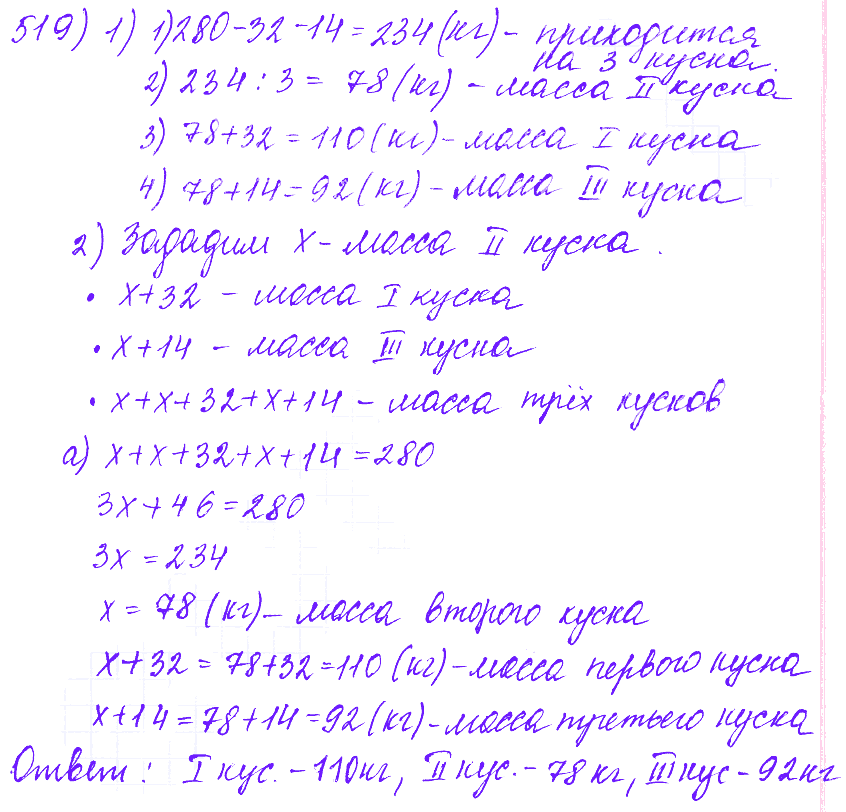 519) 1) 1) 280-32-14=234(кг)- приходится
на 3 куска.
2) 234:3= 78(кг) - масса II куска
3) 78+32=110(кг)-масса I куска
4) 78+14=92(кг)-масса III куска
2) Зададим x-масса II куска.
• x+32 - масса I куска
• x+14 - масса III куска
• x+x+32+x+14- масса трёх кусков
а) x+x+32+x+14=280
3x+46=280
3x=234
x=78(кг)-масса второго куска
x+32=78+32=110(кг)-масса первого куска
x+14=78+14=92(кг)-масса третьего куска
Ответ: I кус.-110кг, II кус.-78кг, III кус-92кг